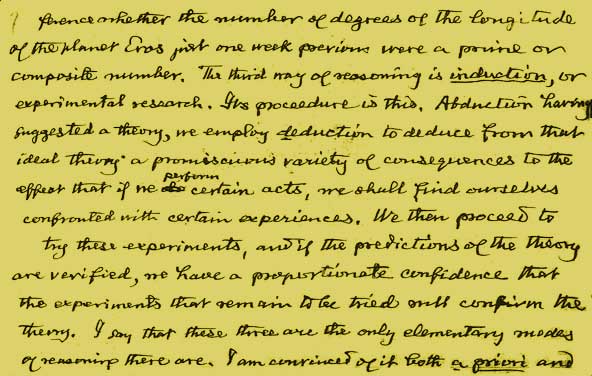 ference whether the number of degrees of the longitude
of the planet Eros just one week previous were a prime or
composite number. The third way of reasoning is induction, or
experimental research. Its procedure is this. Abduction having
suggested a theory, we employ deduction to deduce from that
ideal theory a promiscuous variety of consequences to the
perform
effect that if we do certain acts, we shall find ourselves
confronted with certain experiences. We then proceed to
try these experiments, and if the predictions of the theory
are verified, we have a proportionate confidence that
the experiments that remain to be tried will confirm the
theory. I say that these three are the only elementary modes
of reasoning there are. I am convinced of it both a priori and